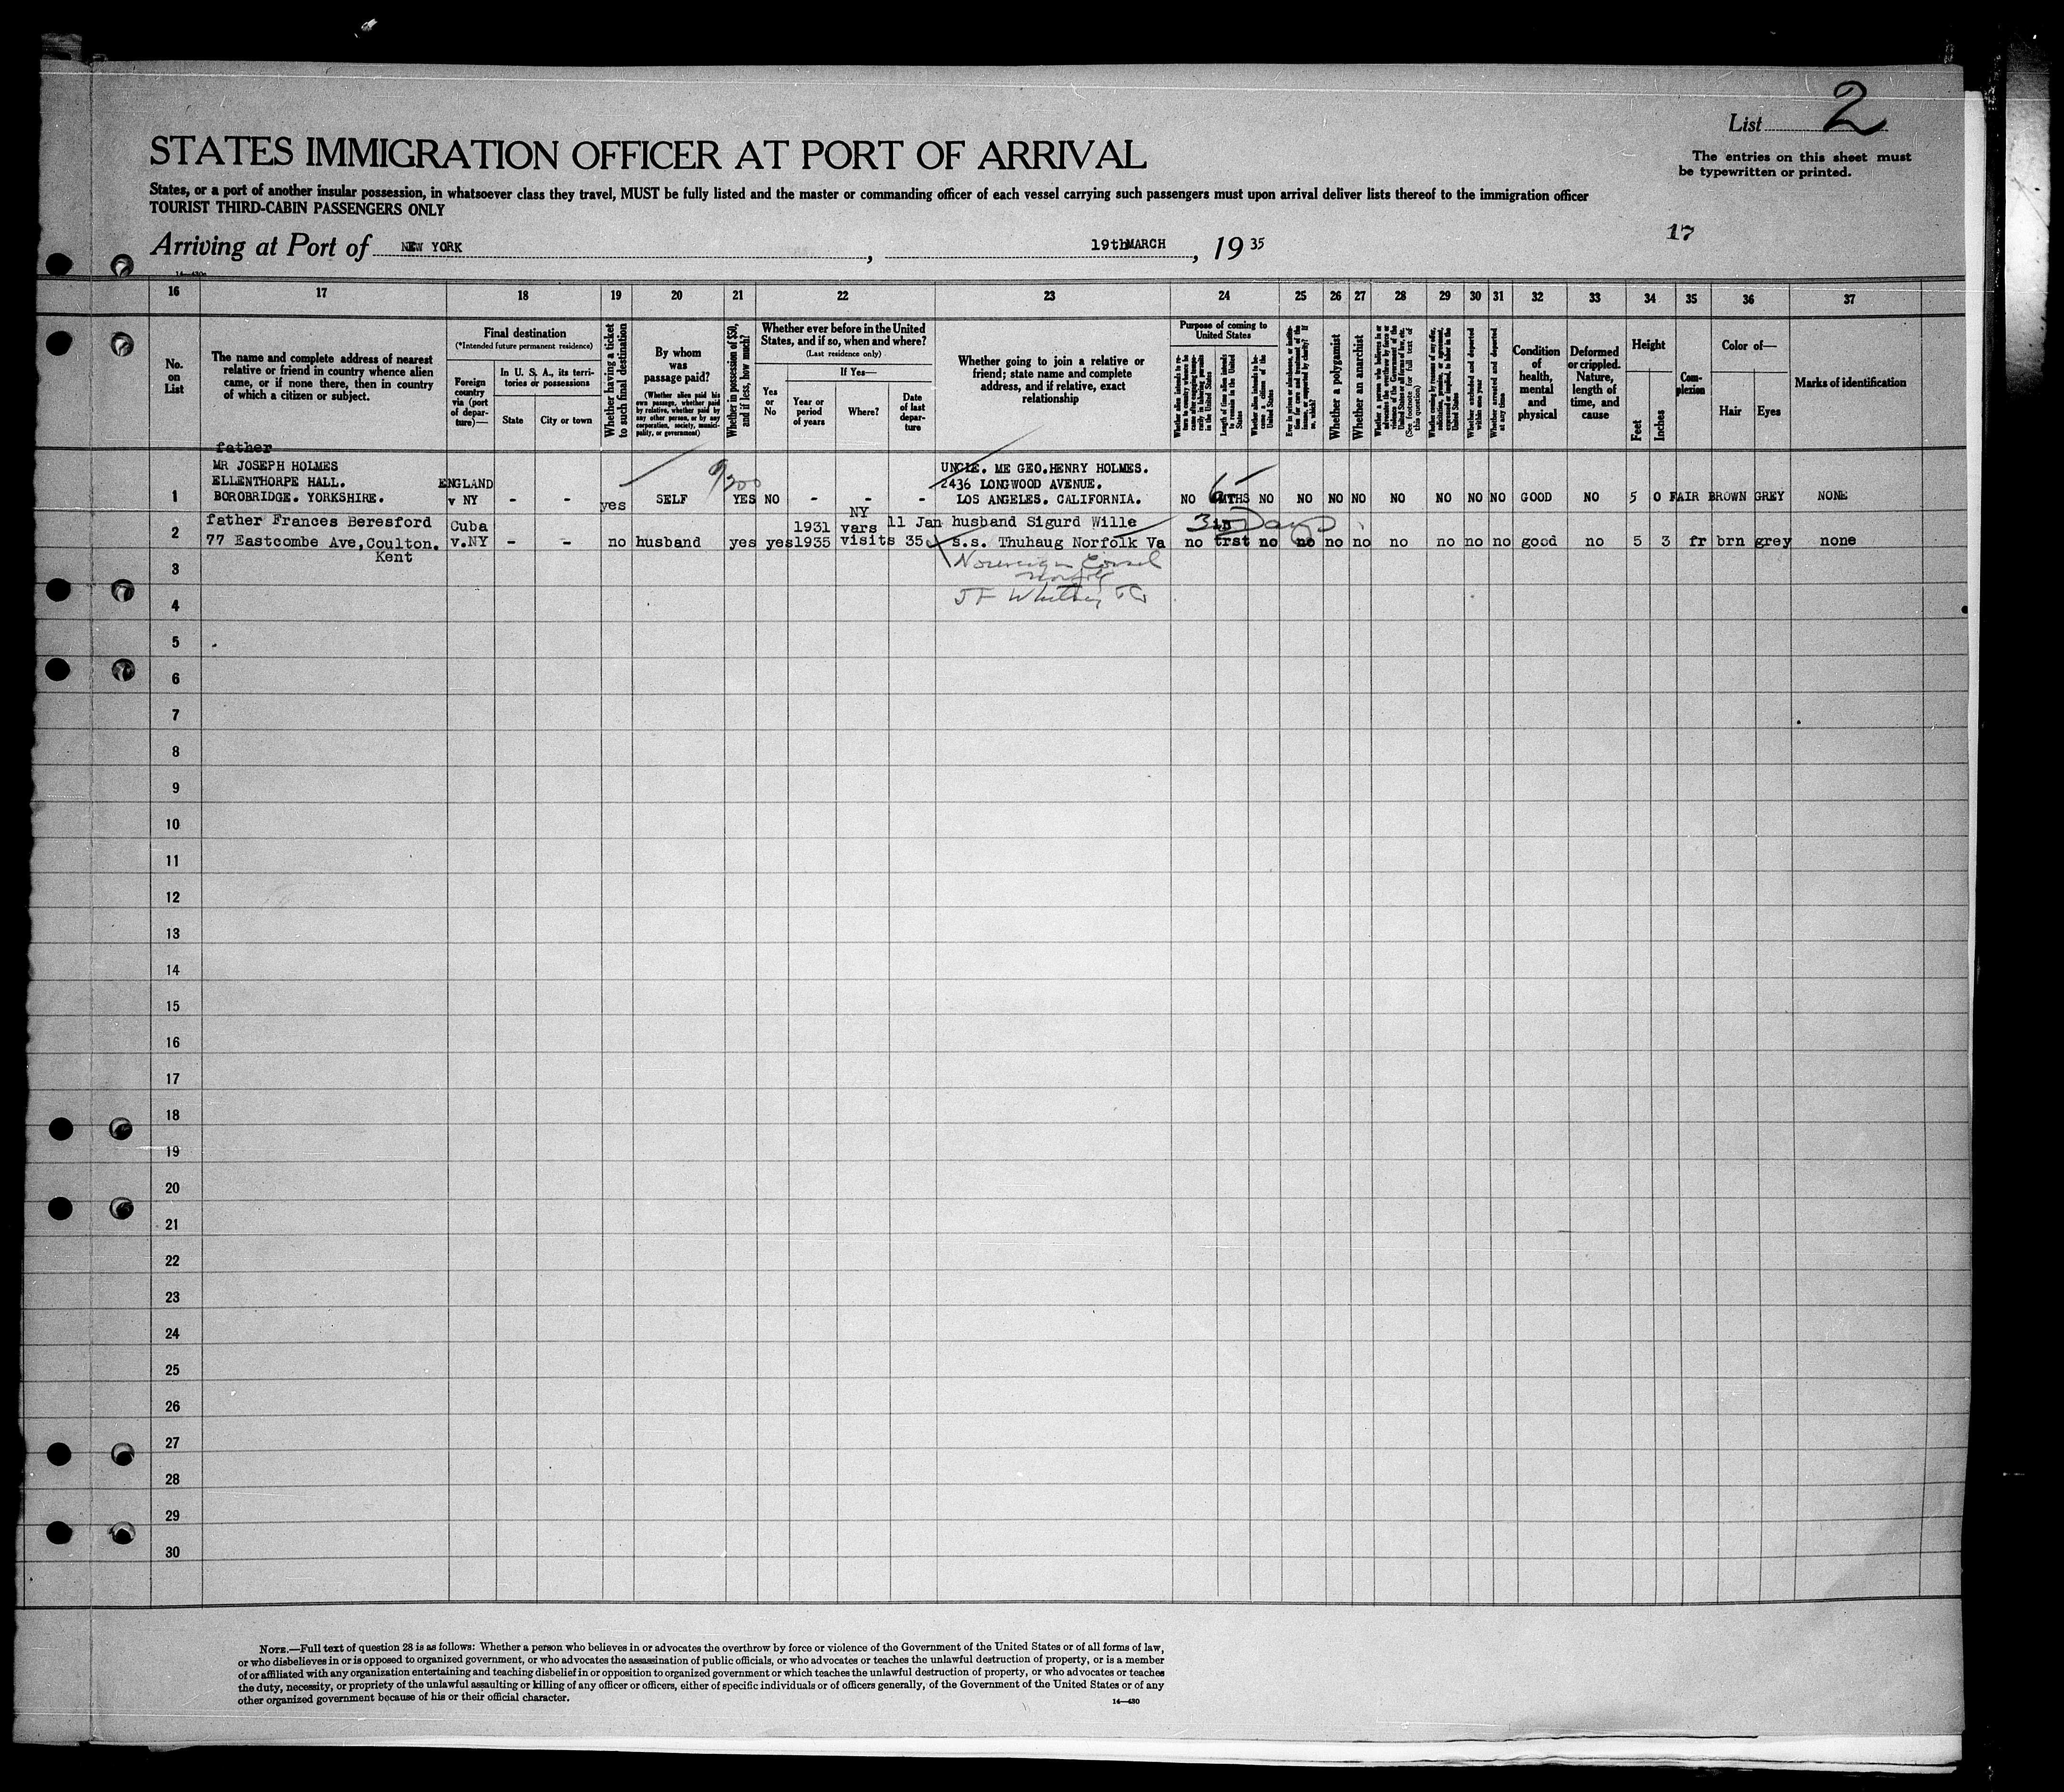 List 2
STATES IMMIGRATION OFFICER AT PORT OF ARRIVAL
The entries on this sheet must
be typewritten or printed.
States, or a port of another insular possession, in whatsoever class they travel, MUST be fully listed and the master or commanding officer of each vessel carrying such passengers must upon arrival deliver lists thereof to the immigration officer
TOURIST THIRD-CABIN PASSENGERS ONLY
17
Arriving at Port of NEW YORK, 19th MARCH, 1935
16 17 18 19 20 21 22 23 24 25 26 27 28 29 30 31 32 33 34 35 36 37
No.
on
List
The name and complete address of nearest
relative or friend in country whence alien
came, or if none there, then in country
of which a citizen or subject.
Final destination
(*Intended future permanent residence)
Foreign
country
via (port
of depar-
ture)—
In U. S. A., its terri-
tories or possessions
State
City or town
Whether having a ticket
to such final destination
By whom
was
passage paid?
(Whether alien paid his
own passage, whether paid
by relative, whether paid by
any other person, or by any
corporation, society, munici-
pality, or government)
Whether in possession of $50,
and if less, how much?
Whether ever before in the United
States, and if so, when and where?
(Last residence only)
Yes
or
No
If Yes—
Year or
period
of years
Where?
Date
of last
depar-
ture
Whether going to join a relative or
friend; state name and complete
address, and if relative, exact
relationship
Purpose of coming to
United States
Length of time alien intends
to remain in the United
States
Whether alien intends to be-
come a citizen of the
United States
Whether a polygamist
Whether an anarchist
(See footnote for full text of
this question)
Whether arrested and deported
at any time
Condition
of
health,
mental
and
physical
Deformed
or crippled.
Nature,
length of
time, and
cause
Height
Feet
Inches
Com-
plexion
Color of—
Hair
Eyes
Marks of identification
father
MR JOSEPH HOLMES UNCLE. ME GEO.HENRY HOLMES.
ELLENTHORPE HALL. ENGLAND 2436 LONGWOOD AVENUE.
1 BOROBRIDGE. YORKSHIRE. v NY - - yes SELF YES NO - - - LOS ANGELES. CALIFORNIA. NO 6 MTHS NO NO NO NO NO NO NO NO GOOD NO 5 0 FAIR BROWN GREY NONE
NY
father Frances Beresford Cuba 1931 vars 11 Jan husband Sigurd Wille 3 Days in
2 77 Eastcombe Ave,Coulton. v.NY - - no husband yes yes 1935 visits 35 s.s. Thuhaug Norfolk Va no trst no no no no no no no no good no 5 3 fr brn grey none
Kent
3
Norfolk
4 J F Whitney
5
6
7
8
9
10
11
12
13
14
15
16
17
18
19
20
21
22
23
24
25
26
27
28
29
30
NOTE.—Full text of question 28 is as follows: Whether a person who believes in or advocates the overthrow by force or violence of the Government of the United States or of all forms of law,
or who disbelieves in or is opposed to organized government, or who advocates the assassination of public officials, or who advocates or teaches the unlawful destruction of property, or is a member
of or affiliated with any organization entertaining and teaching disbelief in or opposition to organized government or which teaches the unlawful destruction of property, or who advocates or teaches
the duty, necessity, or propriety of the unlawful assaulting or killing of any officer or officers, either of specific individuals or of officers generally, of the Government of the United States or of any
other organized government because of his or their official character.
14—430